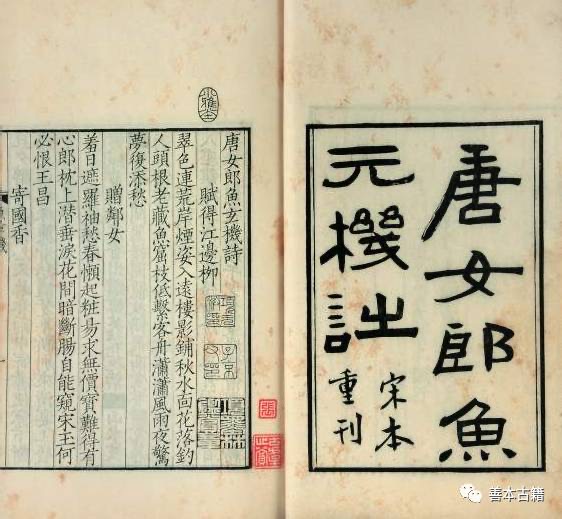 唐女郎魚
元機詩
宋本
重刊
唐女郎魚玄機詩
賦得江邊柳
翠色連荒岸煙姿入遠樓影鋪秋水面花落釣
人頭根老藏魚窟枝低繫客舟瀟瀟風雨夜驚
夢復添愁
贈鄰女
羞日遮羅袖愁春懶起粧易求無價寶難得有
心郎枕上潛垂淚花間暗斷腸自能窺宋玉何
必恨王昌
寄國香
善本古籍